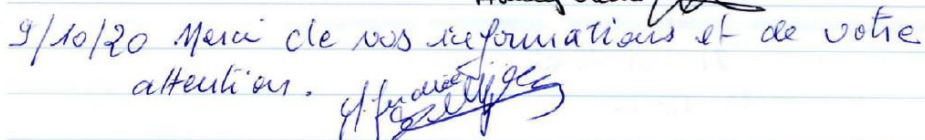 9/10/20 Merci de vos informations et de votre
attention.